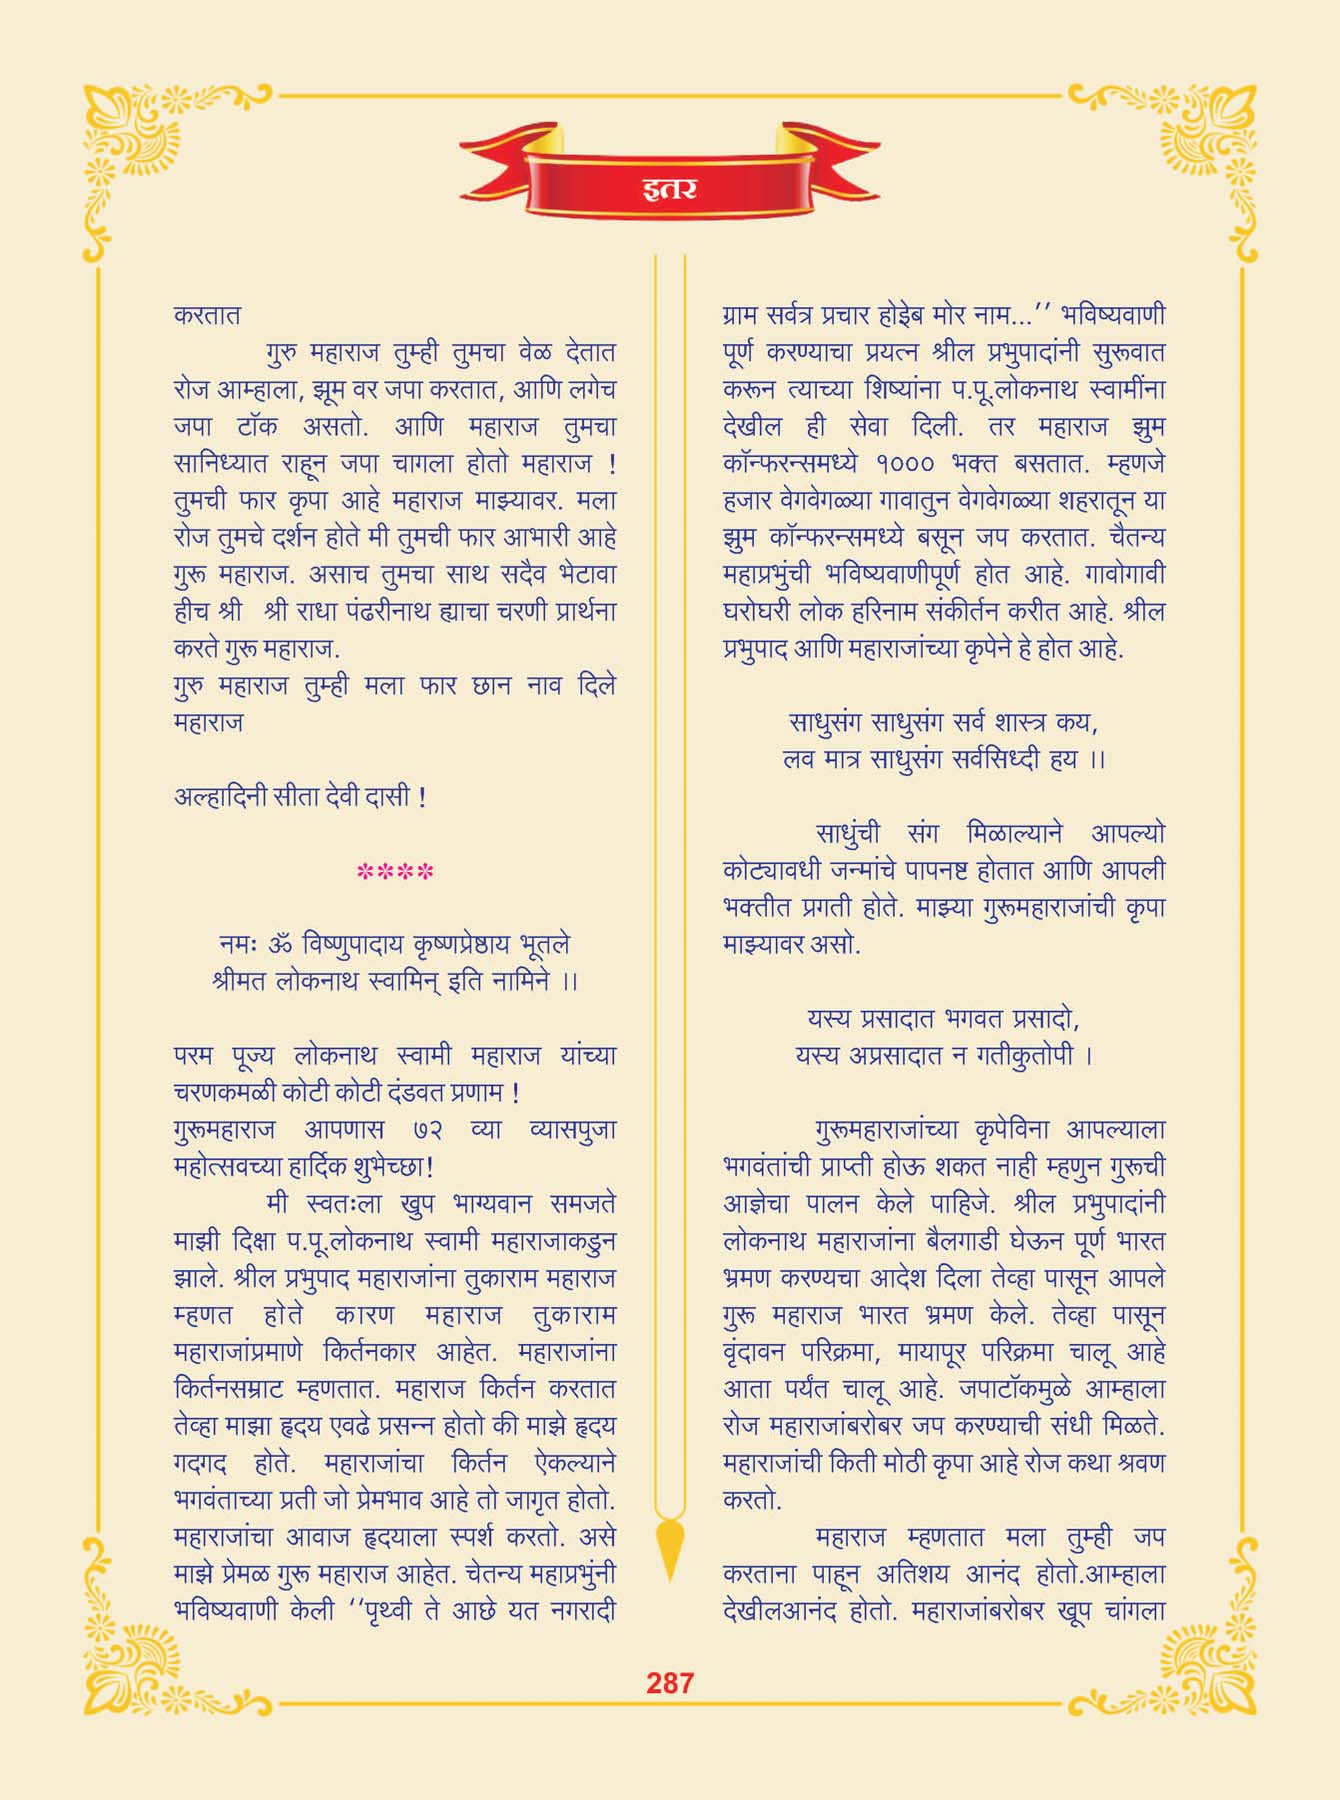 इतर
करतात
गुरु महाराज तुम्ही तुमचा वेळ देतात
रोज आम्हाला, झूम वर जपा करतात, आणि लगेच
जपा टॉक असतो. आणि महाराज तुमचा
सानिध्यात राहून जपा चागला होतो महाराज !
तुमची फार कृपा आहे महाराज माझ्यावर. मला
रोज तुमचे दर्शन होते मी तुमची फार आभारी आहे
गुरू महाराज. असाच तुमचा साथ सदैव भेटावा
हीच श्री श्री राधा पंढरीनाथ ह्याचा चरणी प्रार्थना
करते गुरू महाराज.
गुरु महाराज तुम्ही मला फार छान नाव दिले
महाराज
अल्हादिनी सीता देवी दासी !
****
नमः ॐ विष्णुपादाय कृष्णप्रेष्ठाय भूतले
श्रीमत लोकनाथ स्वामिन् इति नामिने ।।
परम पूज्य लोकनाथ स्वामी महाराज यांच्या
चरणकमळी कोटी कोटी दंडवत प्रणाम !
गुरूमहाराज आपणास ७२ व्या व्यासपुजा
महोत्सवच्या हार्दिक शुभेच्छा!
मी स्वतःला खुप भाग्यवान समजते
माझी दिक्षा प.पू.लोकनाथ स्वामी महाराजाकडुन
झाले. श्रील प्रभुपाद महाराजांना तुकाराम महाराज
म्हणत होते कारण महाराज तुकाराम
महाराजांप्रमाणे किर्तनकार आहेत. महाराजांना
किर्तनसम्राट म्हणतात. महाराज किर्तन करतात
तेव्हा माझा हृदय एवढे प्रसन्न होतो की माझे हृदय
गदगद होते. महाराजांचा किर्तन ऐकल्याने
भगवंताच्या प्रती जो प्रेमभाव आहे तो जागृत होतो.
महाराजांचा आवाज हृदयाला स्पर्श करतो. असे
माझे प्रेमळ गुरू महाराज आहेत. चेतन्य महाप्रभुंनी
भविष्यवाणी केली ‘‘पृथ्वी ते आछे यत नगरादी
ग्राम सर्वत्र प्रचार होइेब मोर नाम...’’ भविष्यवाणी
पूर्ण करण्याचा प्रयत्न श्रील प्रभुपादांनी सुरूवात
करून त्याच्या शिष्यांना प.पू.लोकनाथ स्वामींना
देखील ही सेवा दिली. तर महाराज झुम
कॉन्फरन्समध्ये १००० भक्त बसतात. म्हणजे
हजार वेगवेगळ्या गावातुन वेगवेगळ्या शहरातून या
झुम कॉन्फरन्समध्ये बसून जप करतात. चैतन्य
महाप्रभुंची भविष्यवाणीपूर्ण होत आहे. गावोगावी
घरोघरी लोक हरिनाम संकीर्तन करीत आहे. श्रील
प्रभुपाद आणि महाराजांच्या कृपेने हे होत आहे.
साधुसंग साधुसंग सर्व शास्त्र कय,
लव मात्र साधुसंग सर्वसिध्दी हय ।।
साधुंची संग मिळाल्याने आपल्यो
कोट्यावधी जन्मांचे पापनष्ट होतात आणि आपली
भक्तीत प्रगती होते. माझ्या गुरूमहाराजांची कृपा
माझ्यावर असो.
यस्य प्रसादात भगवत प्रसादो,
यस्य अप्रसादात न गतीकुतोपी ।
गुरूमहाराजांच्या कृपेविना आपल्याला
भगवंतांची प्राप्ती होऊ शकत नाही म्हणुन गुरूची
आज्ञेचा पालन केले पाहिजे. श्रील प्रभुपादांनी
लोकनाथ महाराजांना बैलगाडी घेऊन पूर्ण भारत
भ्रमण करण्यचा आदेश दिला तेव्हा पासून आपले
गुरू महाराज भारत भ्रमण केले. तेव्हा पासून
वृंदावन परिक्रमा, मायापूर परिक्रमा चालू आहे
आता पर्यंत चालू आहे. जपाटॉकमुळे आम्हाला
रोज महाराजांबरोबर जप करण्याची संधी मिळते.
महाराजांची किती मोठी कृपा आहे रोज कथा श्रवण
करतो.
महाराज म्हणतात मला तुम्ही जप
करताना पाहून अतिशय आनंद होतो.आम्हाला
देखीलआनंद होतो. महाराजांबरोबर खूप चांगला
287